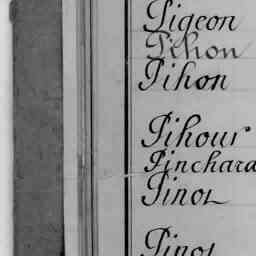 Pigeon
Pihon
Pihon
Pihour
Pinchard
Pinot
Pinot